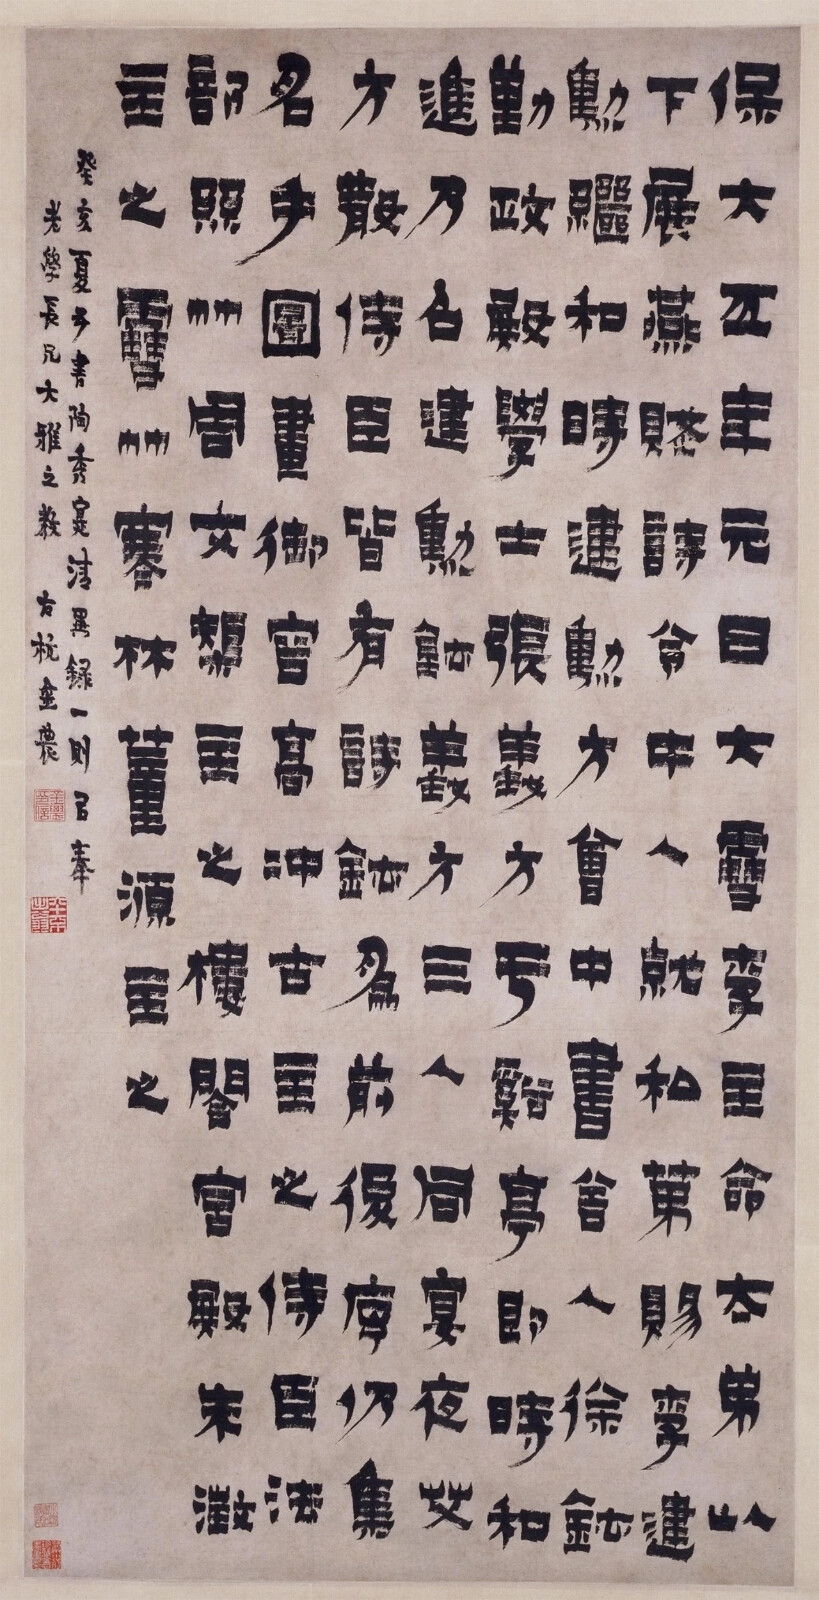 保大五年元日大雪李主命太弟以
下展燕賦詩令中人就私第賜李建
勳繼和時建勳方會中書舍人徐鉉
勤政殿學士張義方于溪亭即時和
進乃召建勳鉉義方三人同宴夜艾
方散侍臣皆有詩鉉為前後序仍集
名手圖畫御容高沖古主之侍臣法
部絲竹周文矩主之樓閣宮殿朱澂
主之雪竹寒林董源主之
癸亥夏五書陶秀寔清異錄一則以奉
老學長兄大雅之教 古杭金農